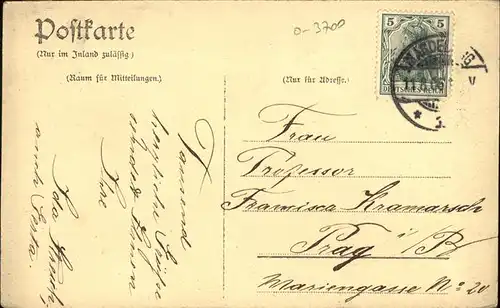 Postkarte
(Nur im Inland zulässig)
(Raum für Mitteilungen.)
(Nur für Adresse.)
o-3700
5 5
DEUTSCHES REICH
Tausend
herzliche Grüsse
Ihnen
Ihre
auch
Frau
Professor
Francisca Kramarsch
Prag i/B
Mariengasse No 20